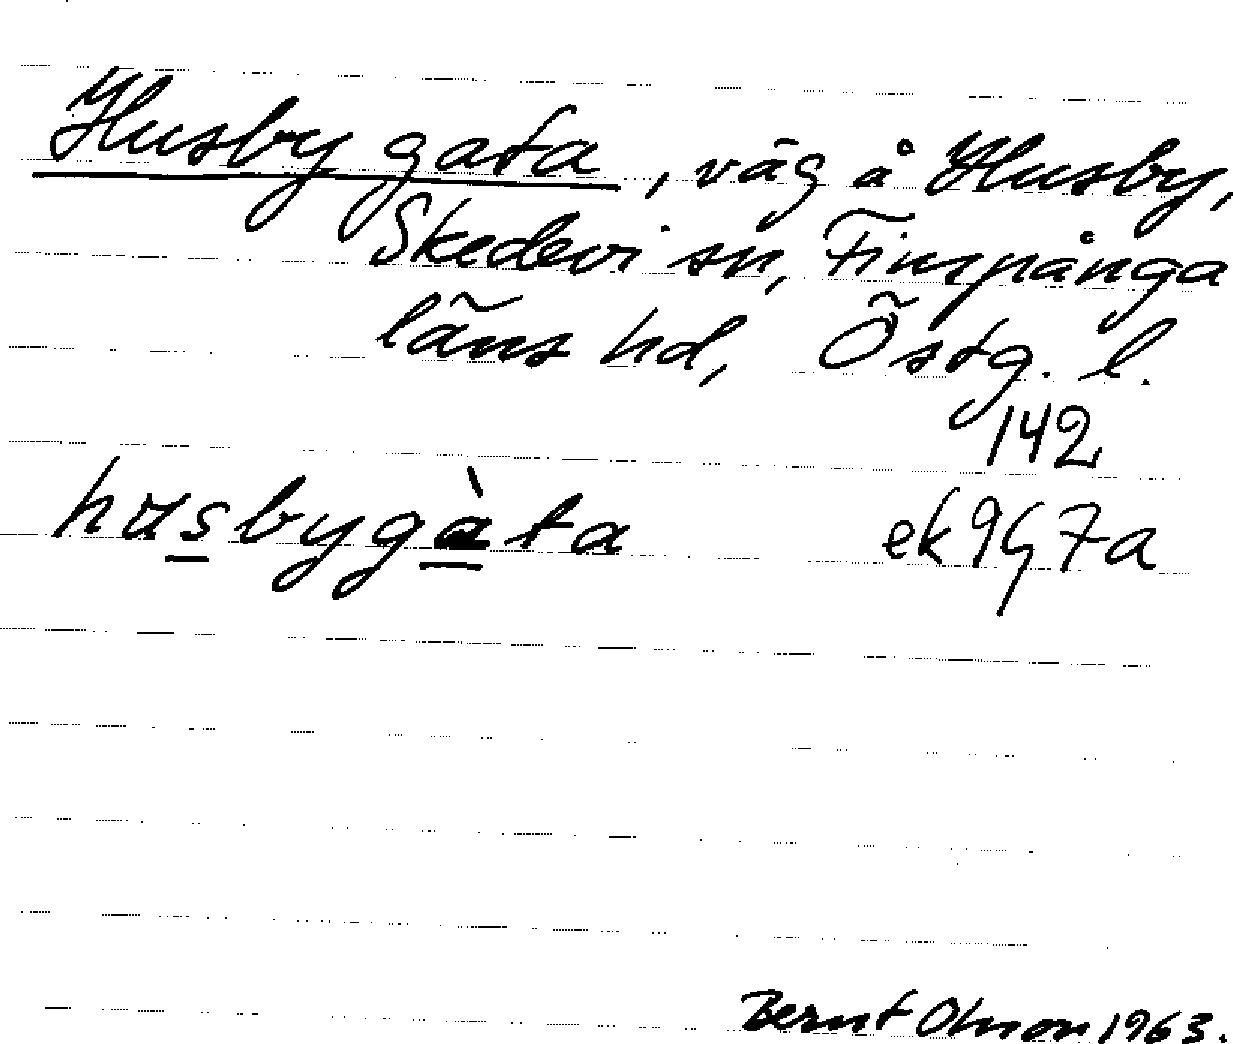 Husby gata, väg å Husby,
Skedevi sn, Finspånga
läns hd, Östg. l.
142
husbygàta ek 9G7a
Bernt Olsson 1963.